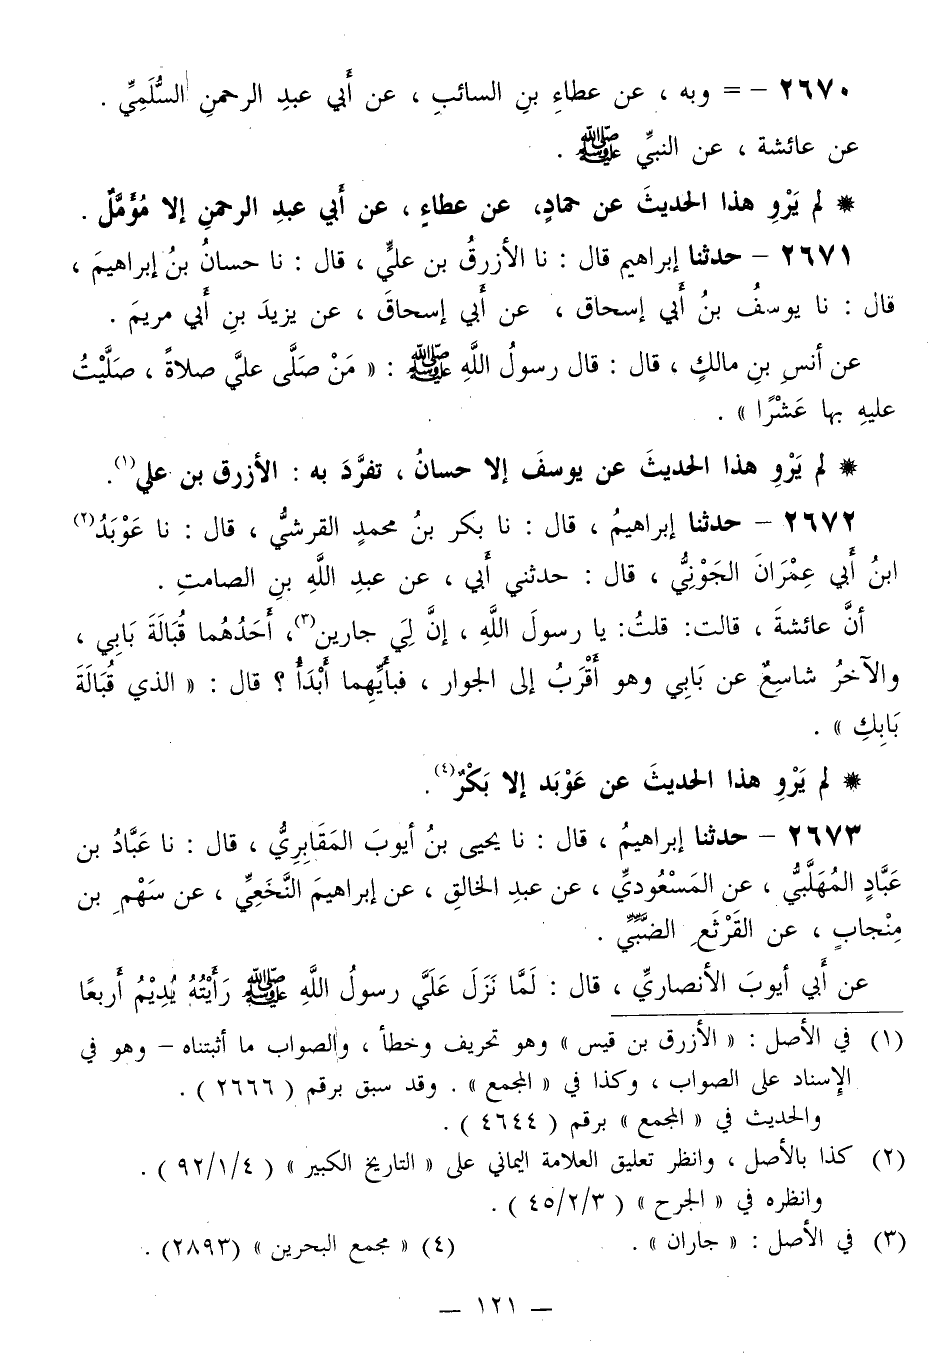 ٢٦٧٠ – = وبه ، عن عطاءِ بنِ السائبِ ، عن أَبي عبدِ الرحمنِ السُّلَمِيِّ .
عن عائشة ، عن النبيِّ ﷺ .
* لم يَرْوِ هذا الحديثَ عن حمادٍ، عن عطاءٍ ، عن أَبي عبدِ الرحمنِ إلا مُؤَمَّلٌ .
٢٦٧١ – حدثنا إبراهيم قال : نا الأزرقُ بن عليٍّ ، قال : نا حسانُ بنُ إبراهيمَ ،
قال : نا يوسفُ بنُ أَبي إسحاق ، عن أَبي إسحاقَ ، عن يزيدَ بنِ أَبي مريمَ .
عن أنسِ بنِ مالكٍ ، قال : قال رسولُ اللَّهِ ﷺ : « مَنْ صَلَّى عليَّ صلاةً ، صلَّيْتُ
عليهِ بها عَشْرًا » .
* لم يَرْوِ هذا الحديثَ عن يوسفَ إلا حسانُ ، تفرَّدَ به : الأزرق بن علي(١).
٢٦٧٢ – حدثنا إبراهيمُ ، قال : نا بكر بنُ محمدٍ القرشيُّ ، قال : نا عَوْبَدُ(٢)
ابنُ أَبي عِمْرَانَ الجَوْنِيُّ ، قال : حدثني أَبي ، عن عبدِ اللَّهِ بنِ الصامتِ .
أنَّ عائشةَ ، قالت: قلتُ: يا رسولَ اللَّهِ ، إنَّ لِي جارين(٣)، أَحَدُهُما قُبَالَةَ بَابِي ،
والآخرُ شاسِعٌ عن بَابِي وهو أَقْرَبُ إلى الجوار ، فبأَيِّهِما أَبْدَأُ ؟ قال : « الذي قُبَالَةَ
بَابِكِ » .
* لم يَرْوِ هذا الحديثَ عن عَوْبَد إلا بَكْرٌ(٤).
٢٦٧٣ – حدثنا إبراهيمُ ، قال : نا يحيى بنُ أيوبَ المَقَابِرِيُّ ، قال : نا عَبَّادُ بن
عَبَّادٍ المُهَلَّبيُّ ، عن المَسْعُوديِّ ، عن عبدِ الخالقِ ، عن إبراهيمَ النَّخَعِيِّ ، عن سَهْمِ بن
مِنْجابٍ ، عن القَرْثَعِ الضَّبِّيِّ .
عن أَبي أيوبَ الأنصاريِّ ، قال : لَمَّا نَزَلَ عَلَيَّ رسولُ اللَّهِ ﷺ رَأَيْتُهُ يُدِيْمُ أَربعًا
(١) في الأصل : « الأزرق بن قيس » وهو تحريف وخطأ ، والصواب ما أثبتناه – وهو في
الإسناد على الصواب ، وكذا في « المجمع » . وقد سبق برقم ( ٢٦٦٦ ) .
والحديث في « المجمع » برقم ( ٤٦٤٤ ) .
(٢) كذا بالأصل ، وانظر تعليق العلامة اليماني على « التاريخ الكبير » ( ٩٢/١/٤ ) .
وانظره في « الجرح » ( ٤٥/٢/٣ ) .
(٣) في الأصل : « جاران » . (٤) « مجمع البحرين » (٢٨٩٣) .
– ١٢١ –